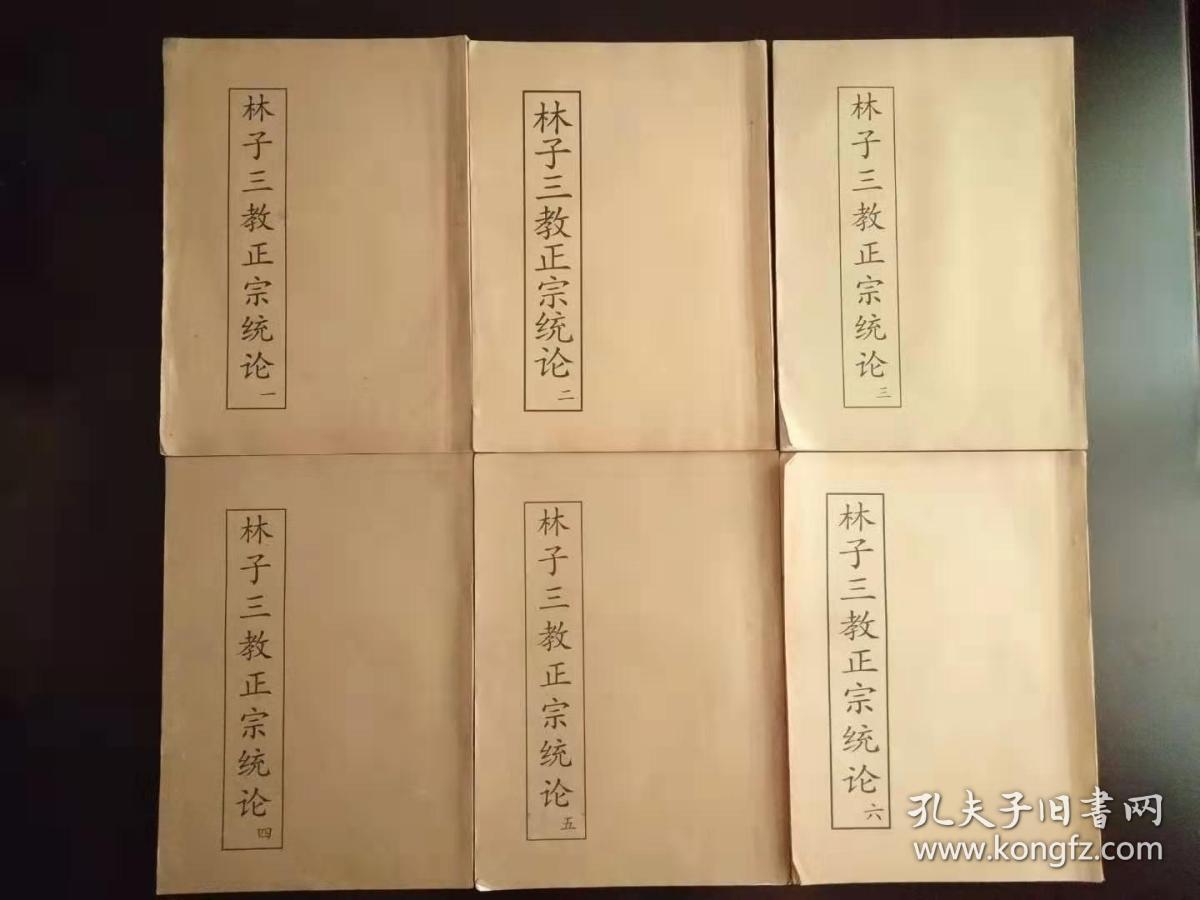 林子三教正宗统论 一
林子三教正宗统论 二
林子三教正宗统论 三
林子三教正宗统论 四
林子三教正宗统论 五
林子三教正宗统论 六
孔夫子旧書网
www.kongfz.com